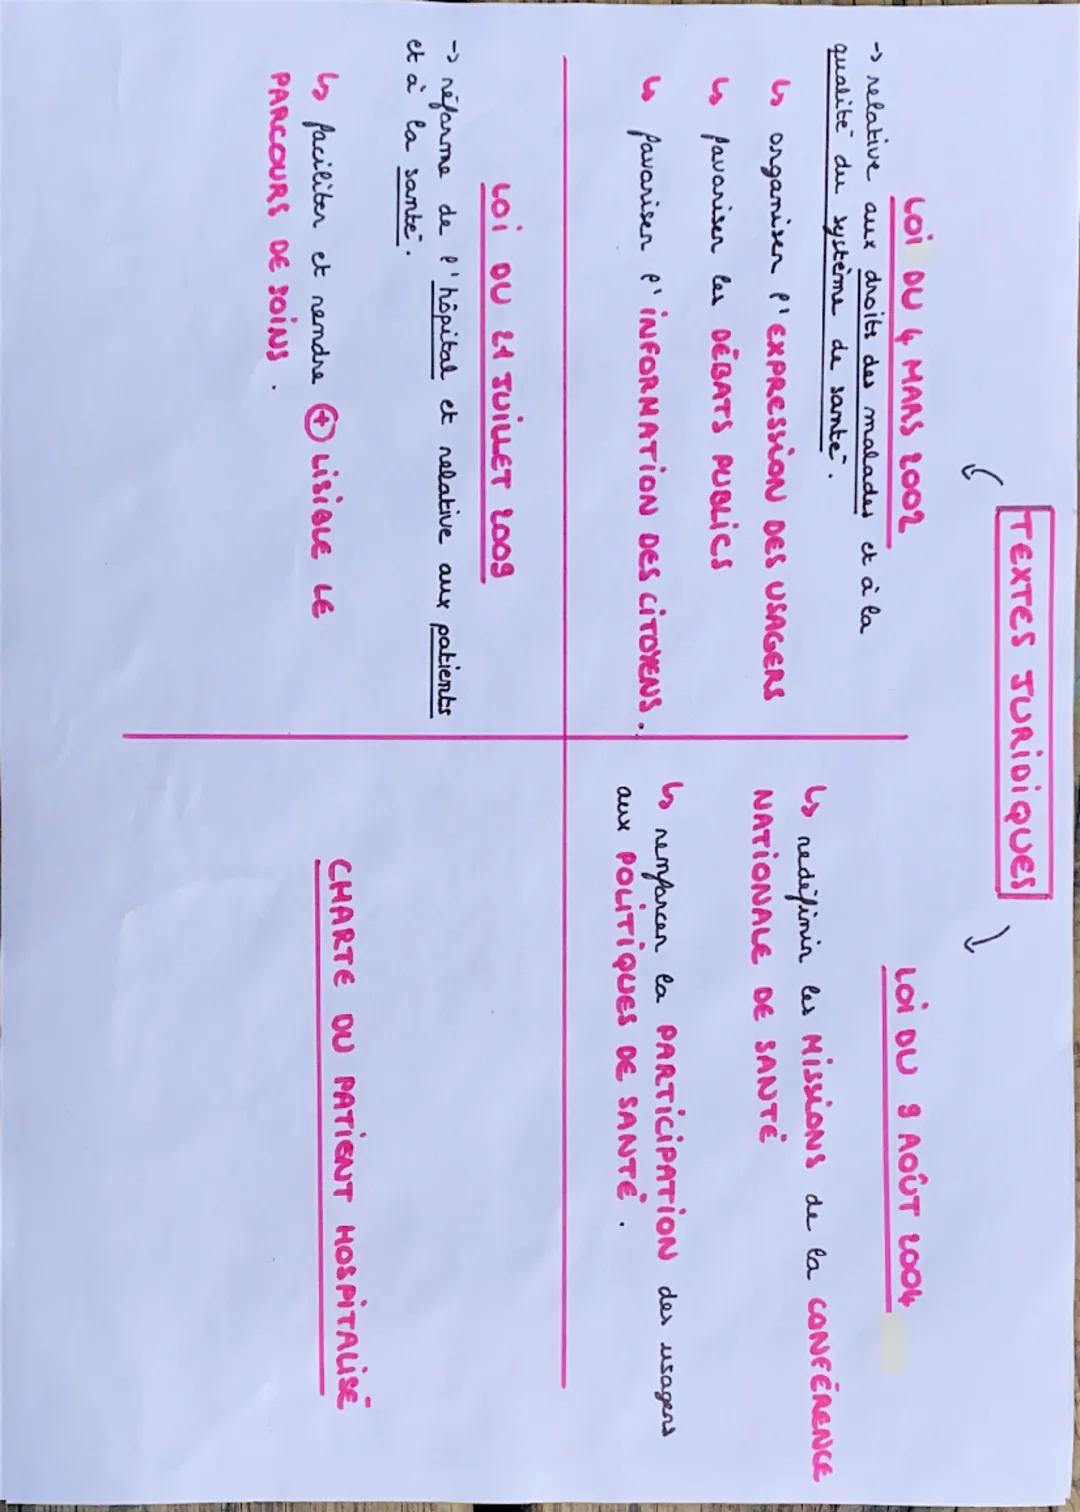 TEXTES JURIDIQUES
LOI DU 4 MARS 2002
→ relative aux droits des malades et à la
qualité du système de santé.
↳ organiser l'EXPRESSION DES USAGERS
↳ favoriser les DÉBATS PUBLICS
↳ favoriser l'INFORMATION DES CITOYENS.
LOI DU 9 AOÛT 2004
↳ redéfinir les MISSIONS de la CONFÉRENCE
NATIONALE DE SANTÉ
↳ renforcer la PARTICIPATION des usagers
aux POLITIQUES DE SANTÉ.
LOI DU 21 JUILLET 2009
→ réforme de l'hôpital et relative aux patients
et à la santé.
↳ faciliter et rendre + LISIBLE LE
PARCOURS DE SOINS.
CHARTE DU PATIENT HOSPITALISÉ